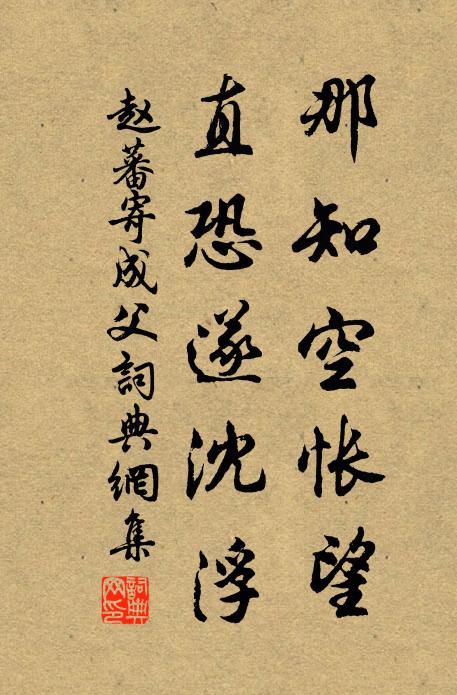 那知空怅望
直恐遂沈浮
赵蕃寄成父詞典網集
詞典网印